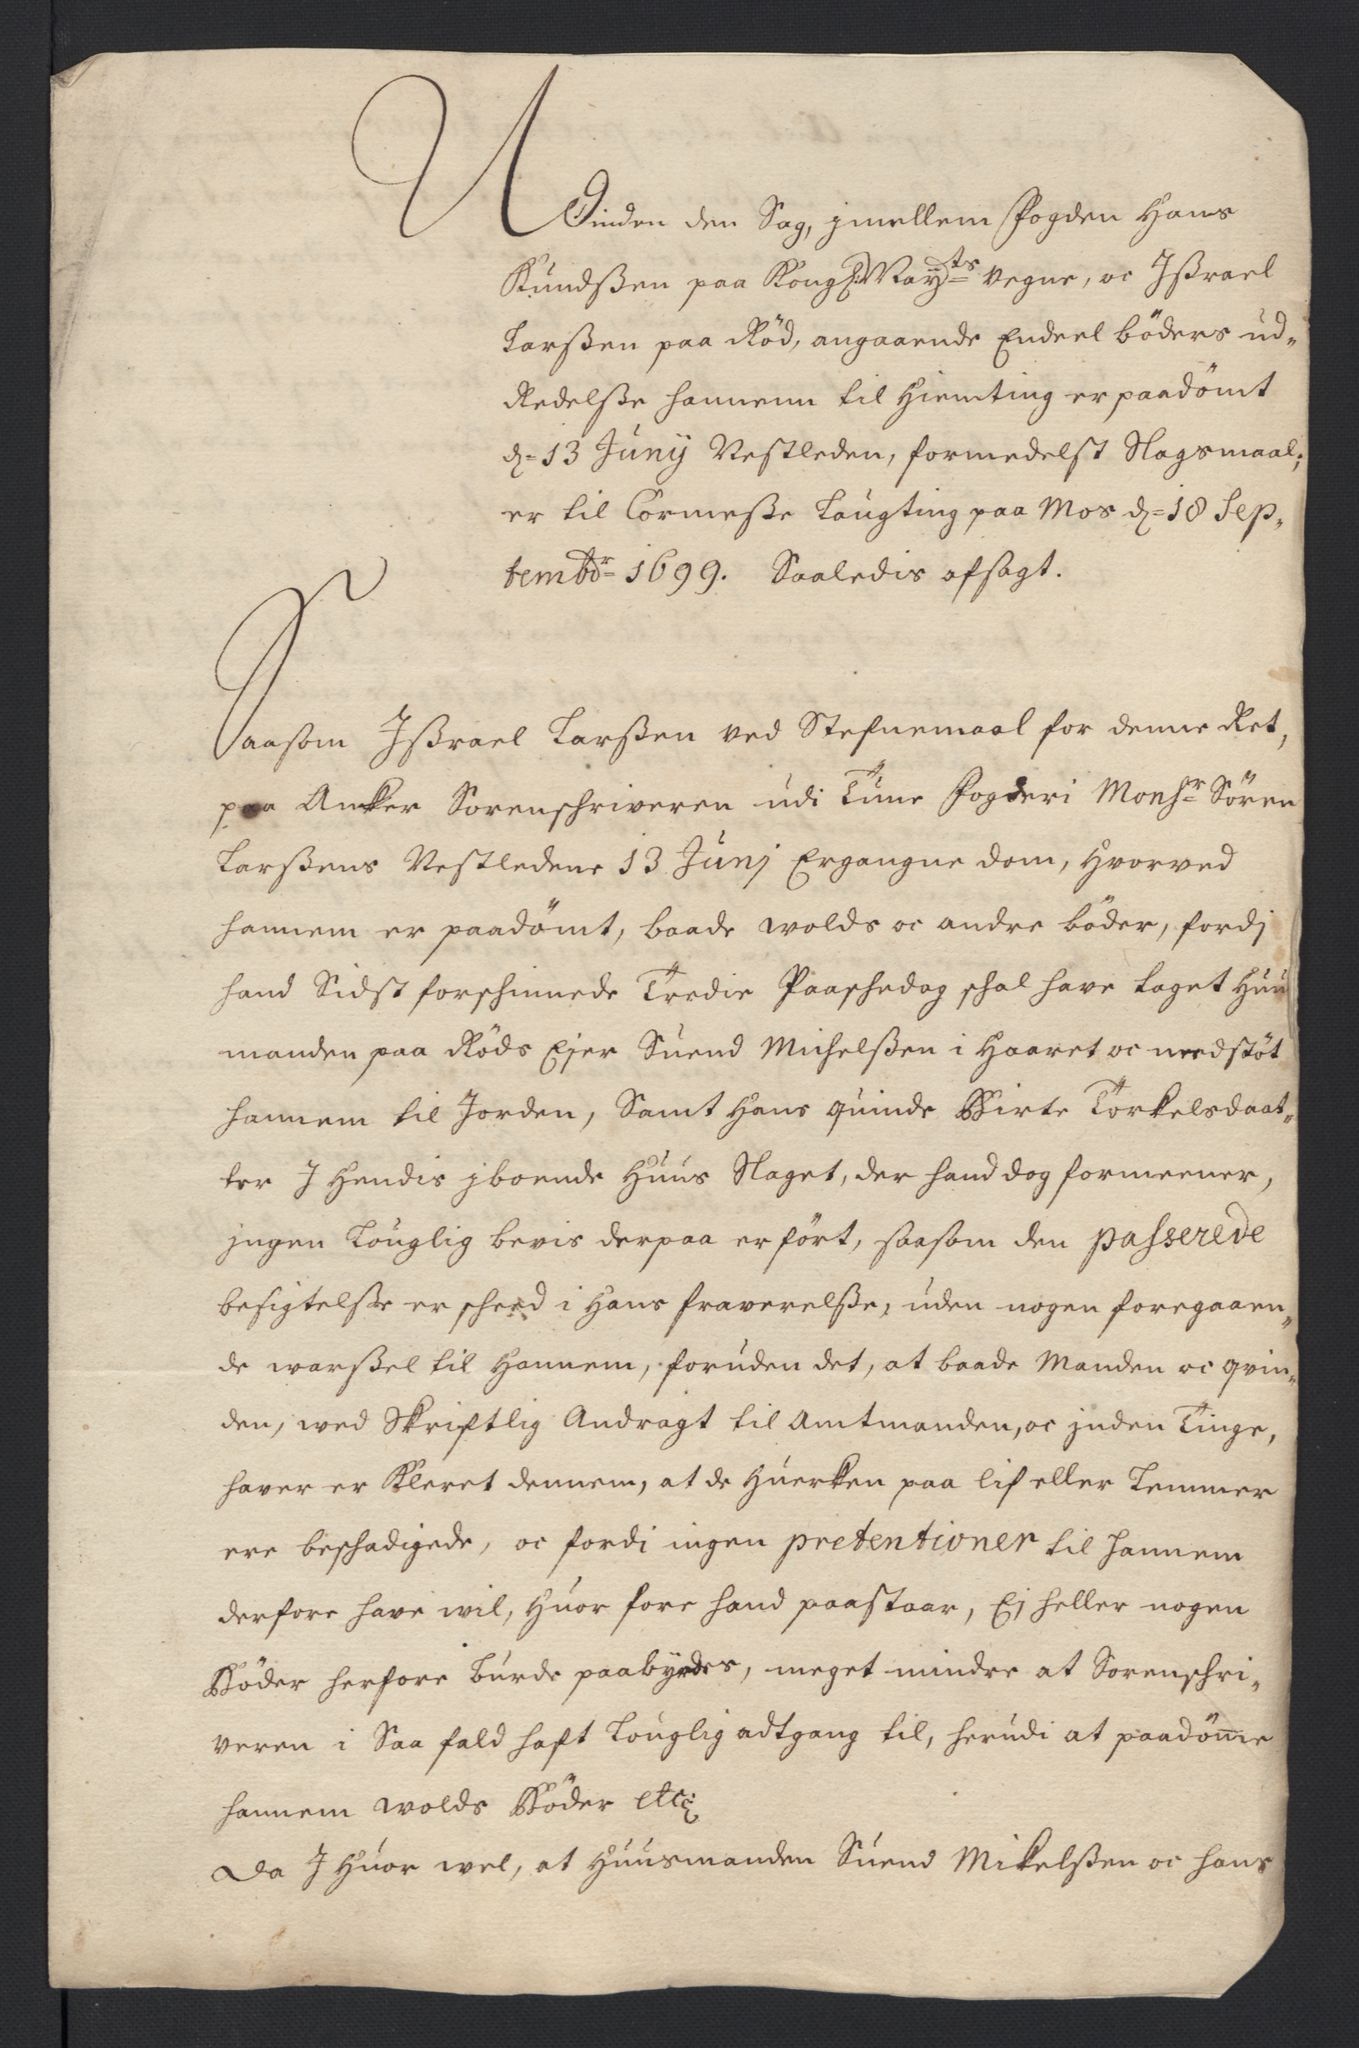 Udinden den Sag, jmellem Fogden Hans
Knudsßen paa Kongl: Mayts vegne, oc Jßrael
Larßen paa Röd, angaaende Endeel böders ud„
Redelsße hannem til Hiemting er paadömt
d= 13 Junij Nestleden, formedelst Slagsmaal;
er til Cormesße Laugting paa Mos d= 18 Sep„
tembr 1699. Saaledis afsagt.
Saasom Jßrael Larßen ved Stefnemaal for denne Ret,
paa Anker Sorenschriveren udi Tune Fogderi Monsr Sören
Larßens Nestledene 13 Junj Ergangne dom, Hvorved
hannem er paadömt, baade wolds oc andre böder, fordj
hand Sidst forschinnede Tredie Paaschedag schal have taget Huu
manden paa Röds Ejer Suend Michelßen i Haaret oc nedstöt
hannem til Jorden, Samt Hans quinde Birte Torkelsdaat„
ter J Hendis jboende Huus Slaget, der hand dog formeener,
jngen Louglig bevis derpaa er fört, saasom den passerede
besigtelse er scheed i Hans fraverelße, uden nogen foregaaen„
de warßel til Hannem, foruden det, at baade Manden oc qvin„
den, wed Skriftlig Andragt til Amtmanden, oc jnden Tinge,
haver er Kleret dennem, at de Huerken paa lif eller Lemmer
ere beschadigede, oc fordi ingen pretentioner til hannem
derfore have wil, Huor fore hand paastaar, Ej heller nogen
Böder herfore burde paabyrdes, meget mindre at Sorenschri„
veren i Saa fald haft Louglig adtgang til, herudi at paadöme
hannem wolds Böder etc:
Da J Huor wel, at Huusmanden Suend Mikelßen oc hans